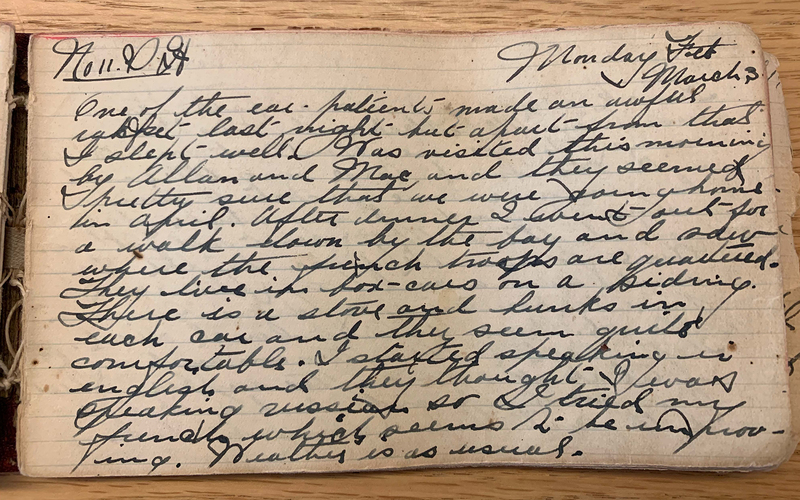 No 11. D. H    Monday Feb
March 3
One of the ear-patients made an awful
racket last night but apart from that
I slept well. Was visited this morning
by Allan and Mac and they seemed
pretty sure that we were going home
in April. After dinner I went out for
a walk down by the bay and saw
where the french troops are quartered.
They live in box-cars on a siding.
There is a stove and bunks in
each car and they seem quite
comfortable. I started speaking in
english and they thought I was
speaking russian so I tried my
french which seems to be improv-
ing. Weather is as usual.